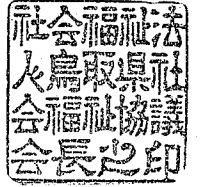 社会福祉法
人鳥取県社
会福祉協議
会長之印